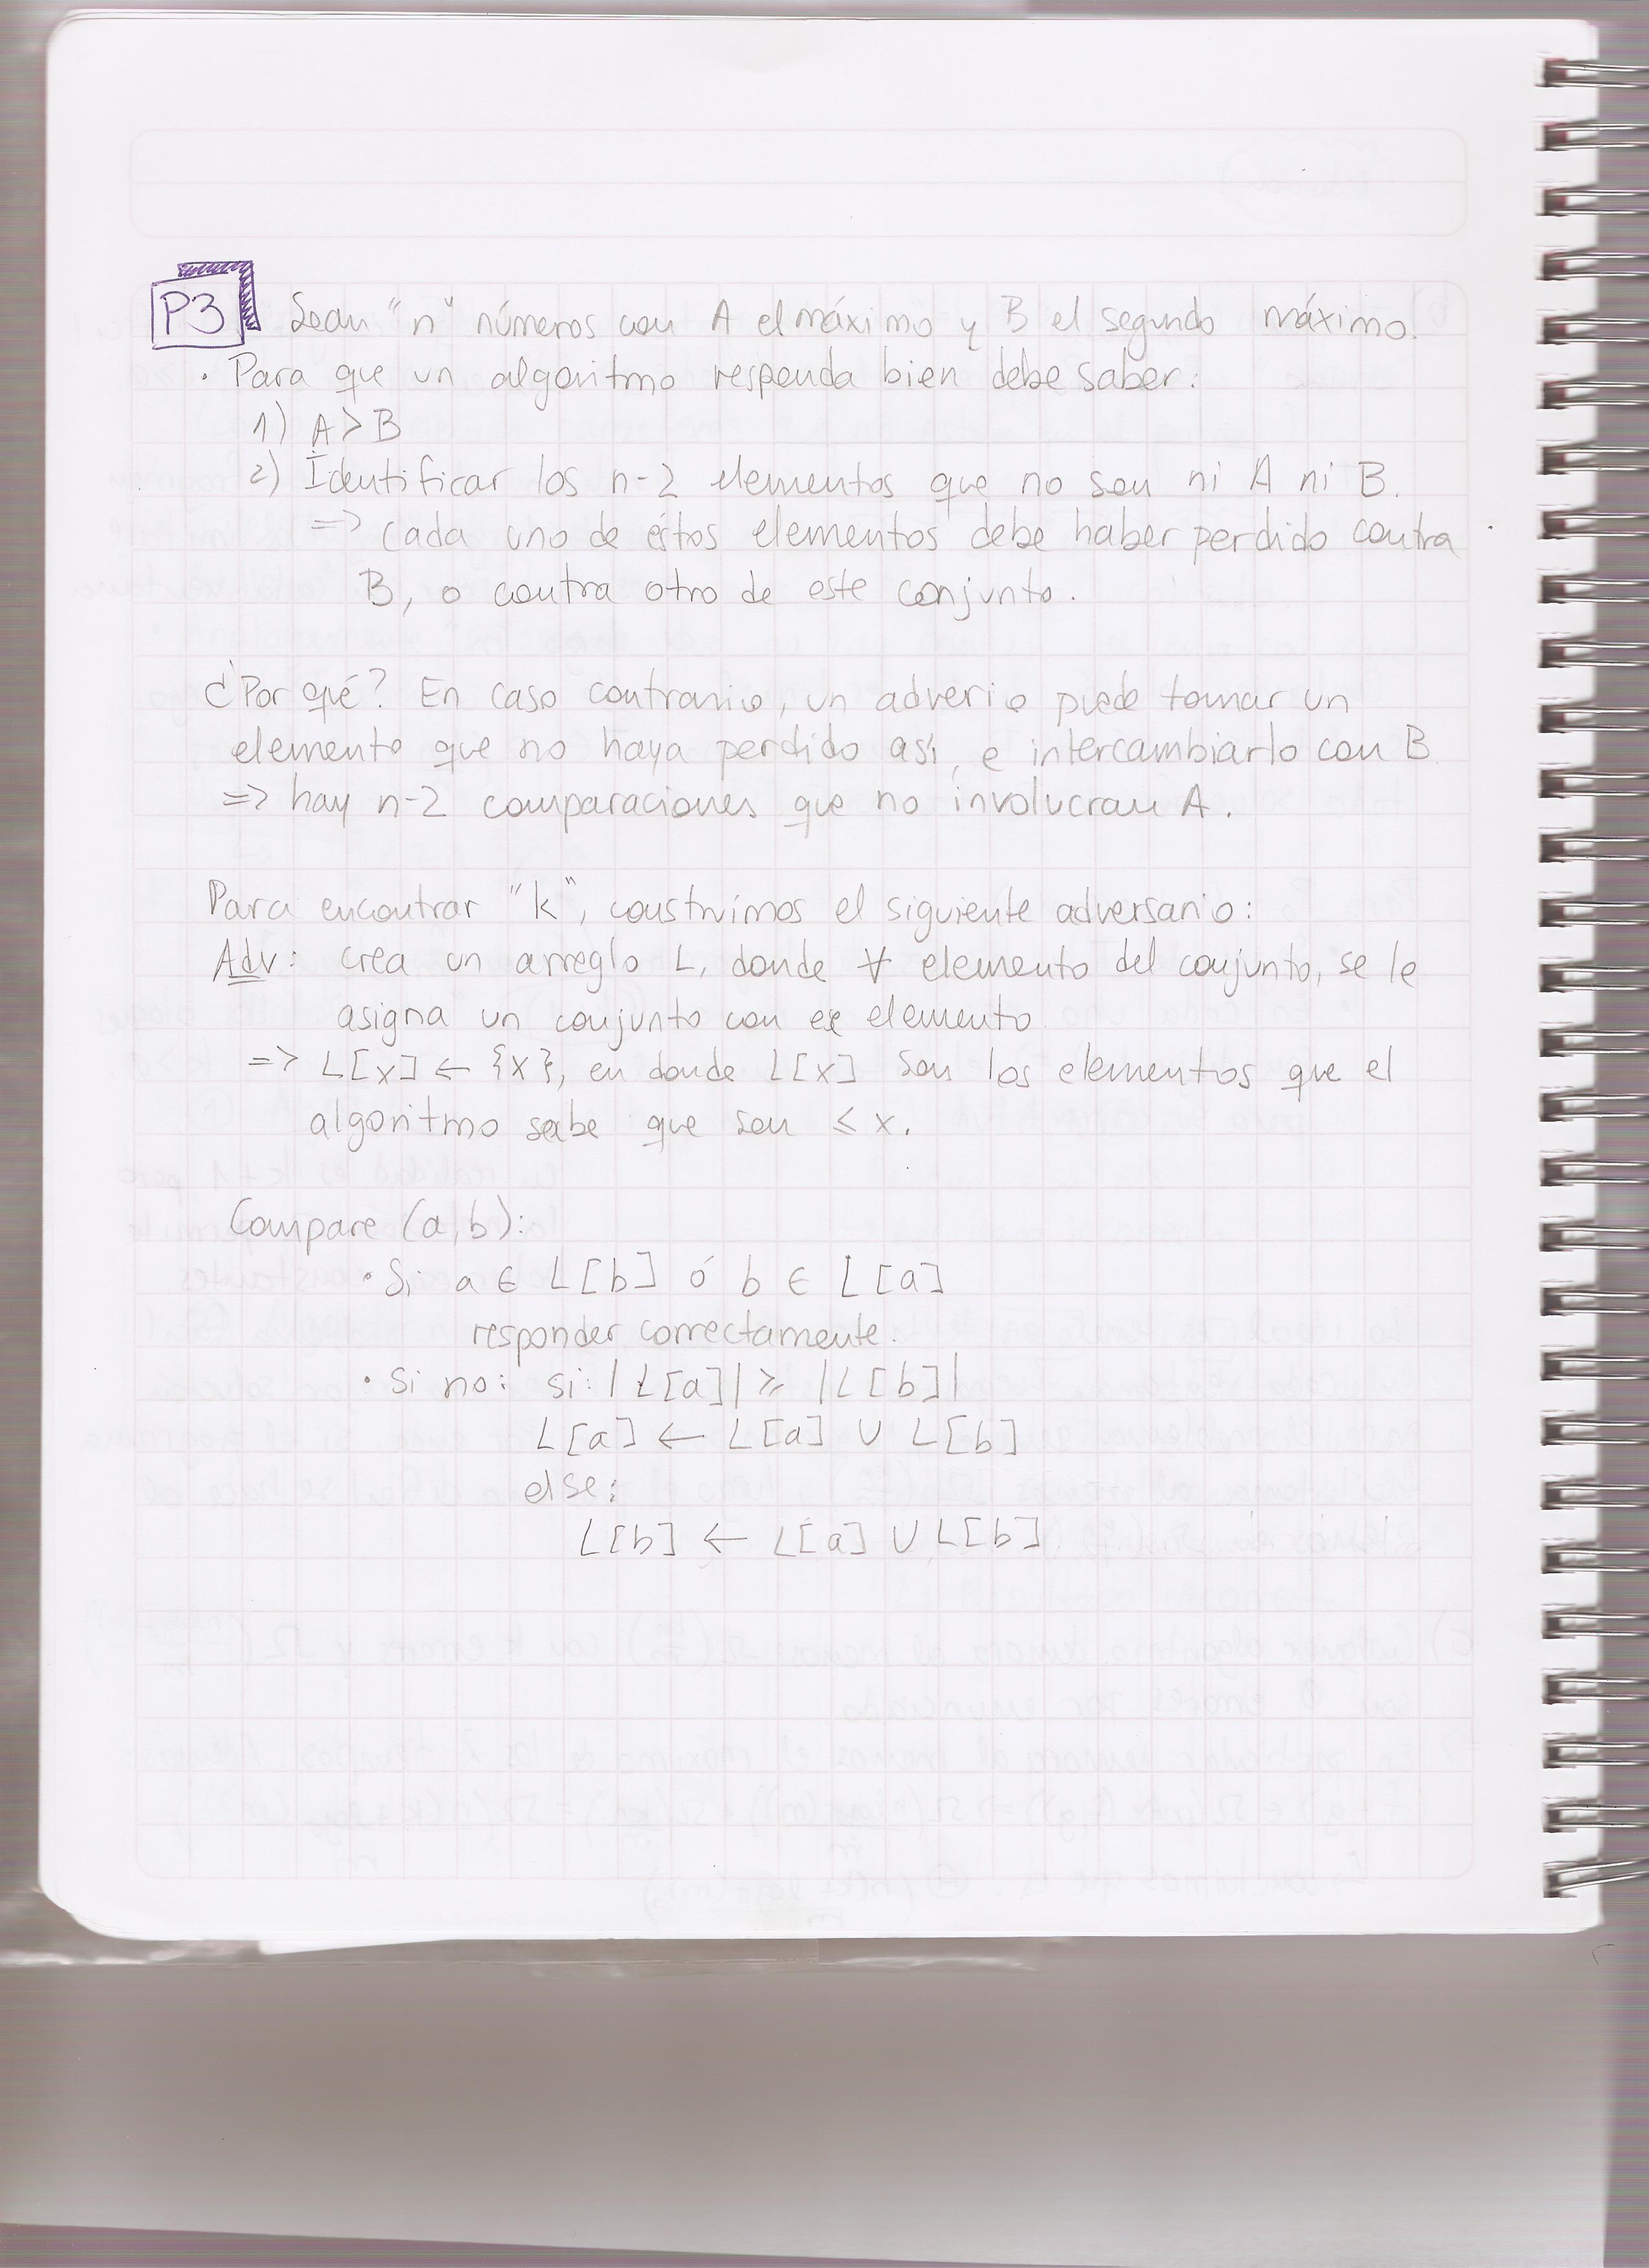 P3 Sean "n" números con A el máximo y B el segundo máximo.
• Para que un algoritmo responda bien debe saber:
1) A > B
2) Identificar los n-2 elementos que no son ni A ni B.
=> cada uno de éstos elementos debe haber perdido contra
B, o contra otro de este conjunto.
¿Por qué? En caso contrario, un adverio puede tomar un
elemento que no haya perdido así, e intercambiarlo con B
=> hay n-2 comparaciones que no involucran A.
Para encontrar "k", construimos el siguiente adversario:
Adv: crea un arreglo L, donde ∀ elemento del conjunto, se le
asigna un conjunto con ese elemento
=> L[x] ← {x}, en donde L[x] son los elementos que el
algoritmo sabe que son ≤ x.
Compare (a,b):
• Si a ∈ L[b] ó b ∈ L[a]
responder correctamente.
• Si no: si: |L[a]| ≥ |L[b]|
L[a] ← L[a] ∪ L[b]
else:
L[b] ← L[a] ∪ L[b]